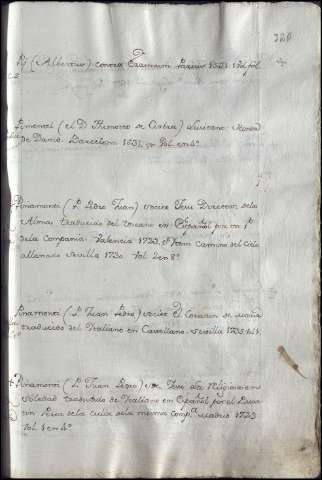 320
Pij (Albertus) contra Erasmum Parisiis 1531. Vol. fol.
Pimentel (el D. Themoteo de Ciabra) Lusitano. Honda
de David. Barcelona 1631. Vol. en 4º
Pinamonti (P. Pedro Juan) Societ. Jesu Director de las
Almas traducido del toscano en Español por un P.
de la Compania. Valencia 1723. et Item Camino del Cielo
allanado Sevilla 1730. Vol. 2 en 8º
Pinamonti (P. Juan Pedro) Societ. El Corazon de Maria
traducido del Italiano en Castellano. Sevilla 1735. Vol. 1.
Pinamonti (P. Juan Pedro) Soc. Jesu La Religiosa en
Soledad traducida de Italiano en Español por el
de la misma Comp.ª Madrid 1723
Vol. 1 en 4º